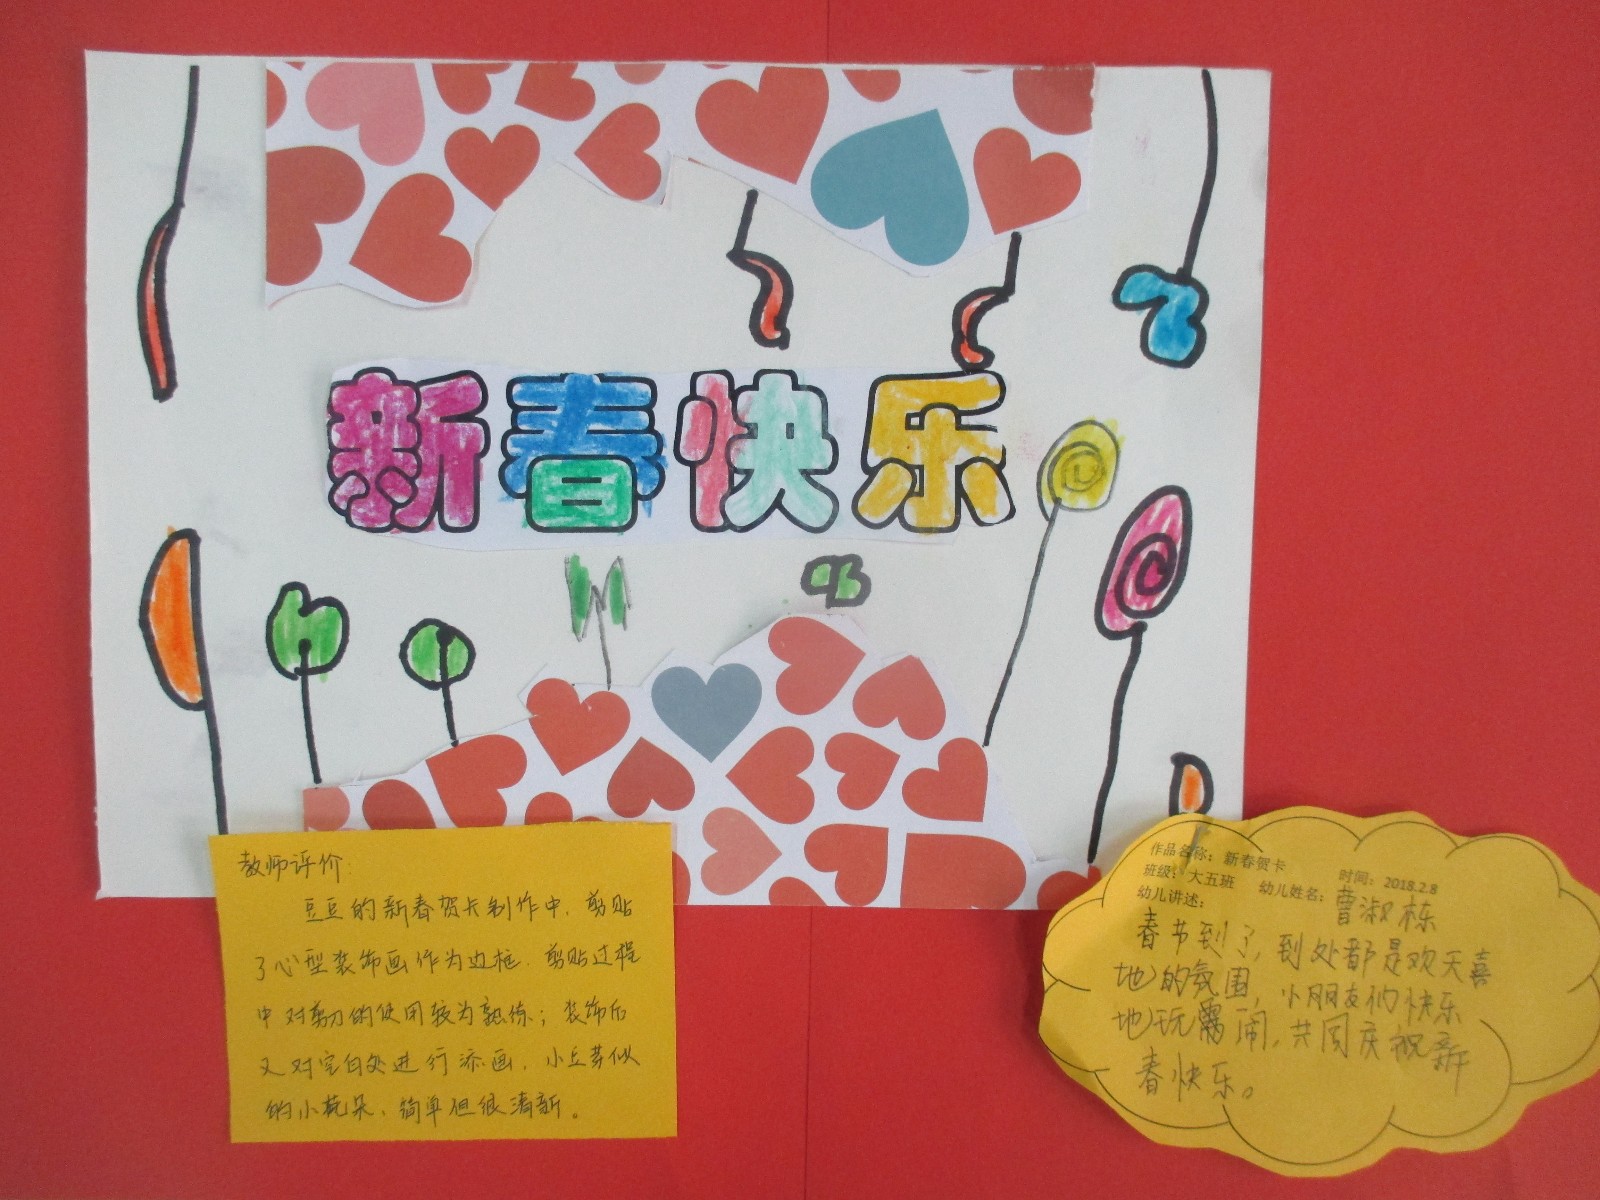 新春快乐
教师评价:
豆豆的新春贺卡制作中，剪贴
了心型装饰画作为边框，剪贴过程
中对剪刀的使用较为熟练；装饰后
又对空白处进行添画，小豆芽似
的小花朵，简单但很清新。
作品名称：新春贺卡
时间：2018.2.8
班级：大五班 幼儿姓名：曹淑栋
幼儿讲述：
春节到了，到处都是欢天喜
地的氛围，小朋友们快乐
地玩闹，共同庆祝新
春快乐。